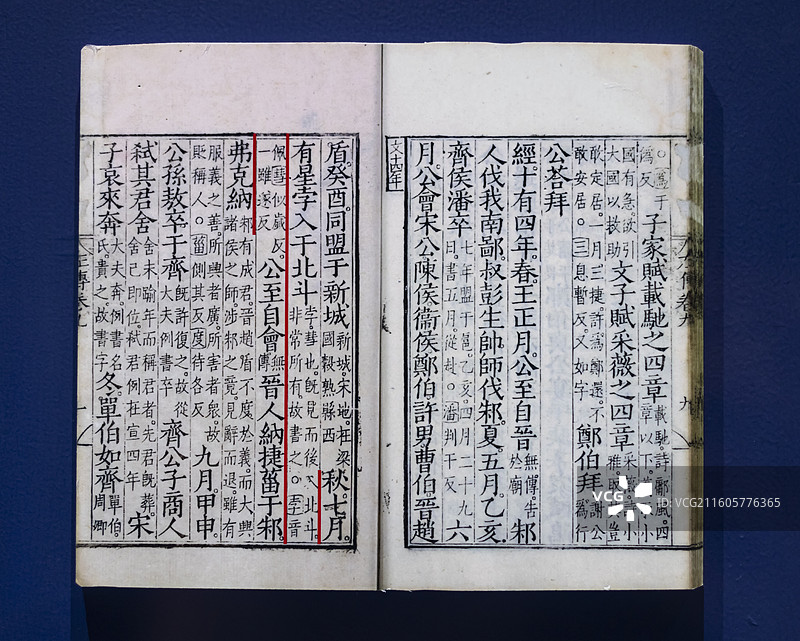 于偽反子家賦載馳之四章載馳詩鄘風四章以下小
國有急欲引大國以救助文子賦采薇之四章采薇詩小雅取其豈
敢定居。一月三捷。許為鄭還。不敢安居。○三息暫反又如字鄭伯拜謝公為行
公荅拜
經。十有四年。春王正月。公至自晉無傳告於廟邾
人伐我南鄙。叔彭生帥師伐邾。夏。五月乙亥。
齊侯潘卒七年盟于扈。乙亥。四月二十九日。書五月。從赴。○潘判干反六
月。公會宋公陳侯衞侯鄭伯許男曹伯晉趙
文十四年
盾。癸酉。同盟于新城新城。宋地。在梁國穀熟縣西秋。七月。
有星孛入于北斗孛。彗也。既見而後入北斗。非常所有。故書之。○孛音
佩。彗似歲反。一雖遂反公至自會無傳晉人納捷菑于邾。
弗克納邾有成君。晉趙盾不度於義。而大興諸侯之師。涉邾之竟。見辭而退。雖有
服義之善。所興者廣。所害者衆。故貶稱人。○菑側其反度待各反九月。甲申。
公孫敖卒于齊既許復之。故從大夫例書卒齊公子商人
弒其君舍舍未踰年而稱君者。先君既葬。舍已即位。弒君例在宣四年宋
子哀來奔大夫奔。例書名氏。貴之。故書字冬。單伯如齊單伯。周卿
左傳卷九
VCG
VCG
ID: VCG211605776365